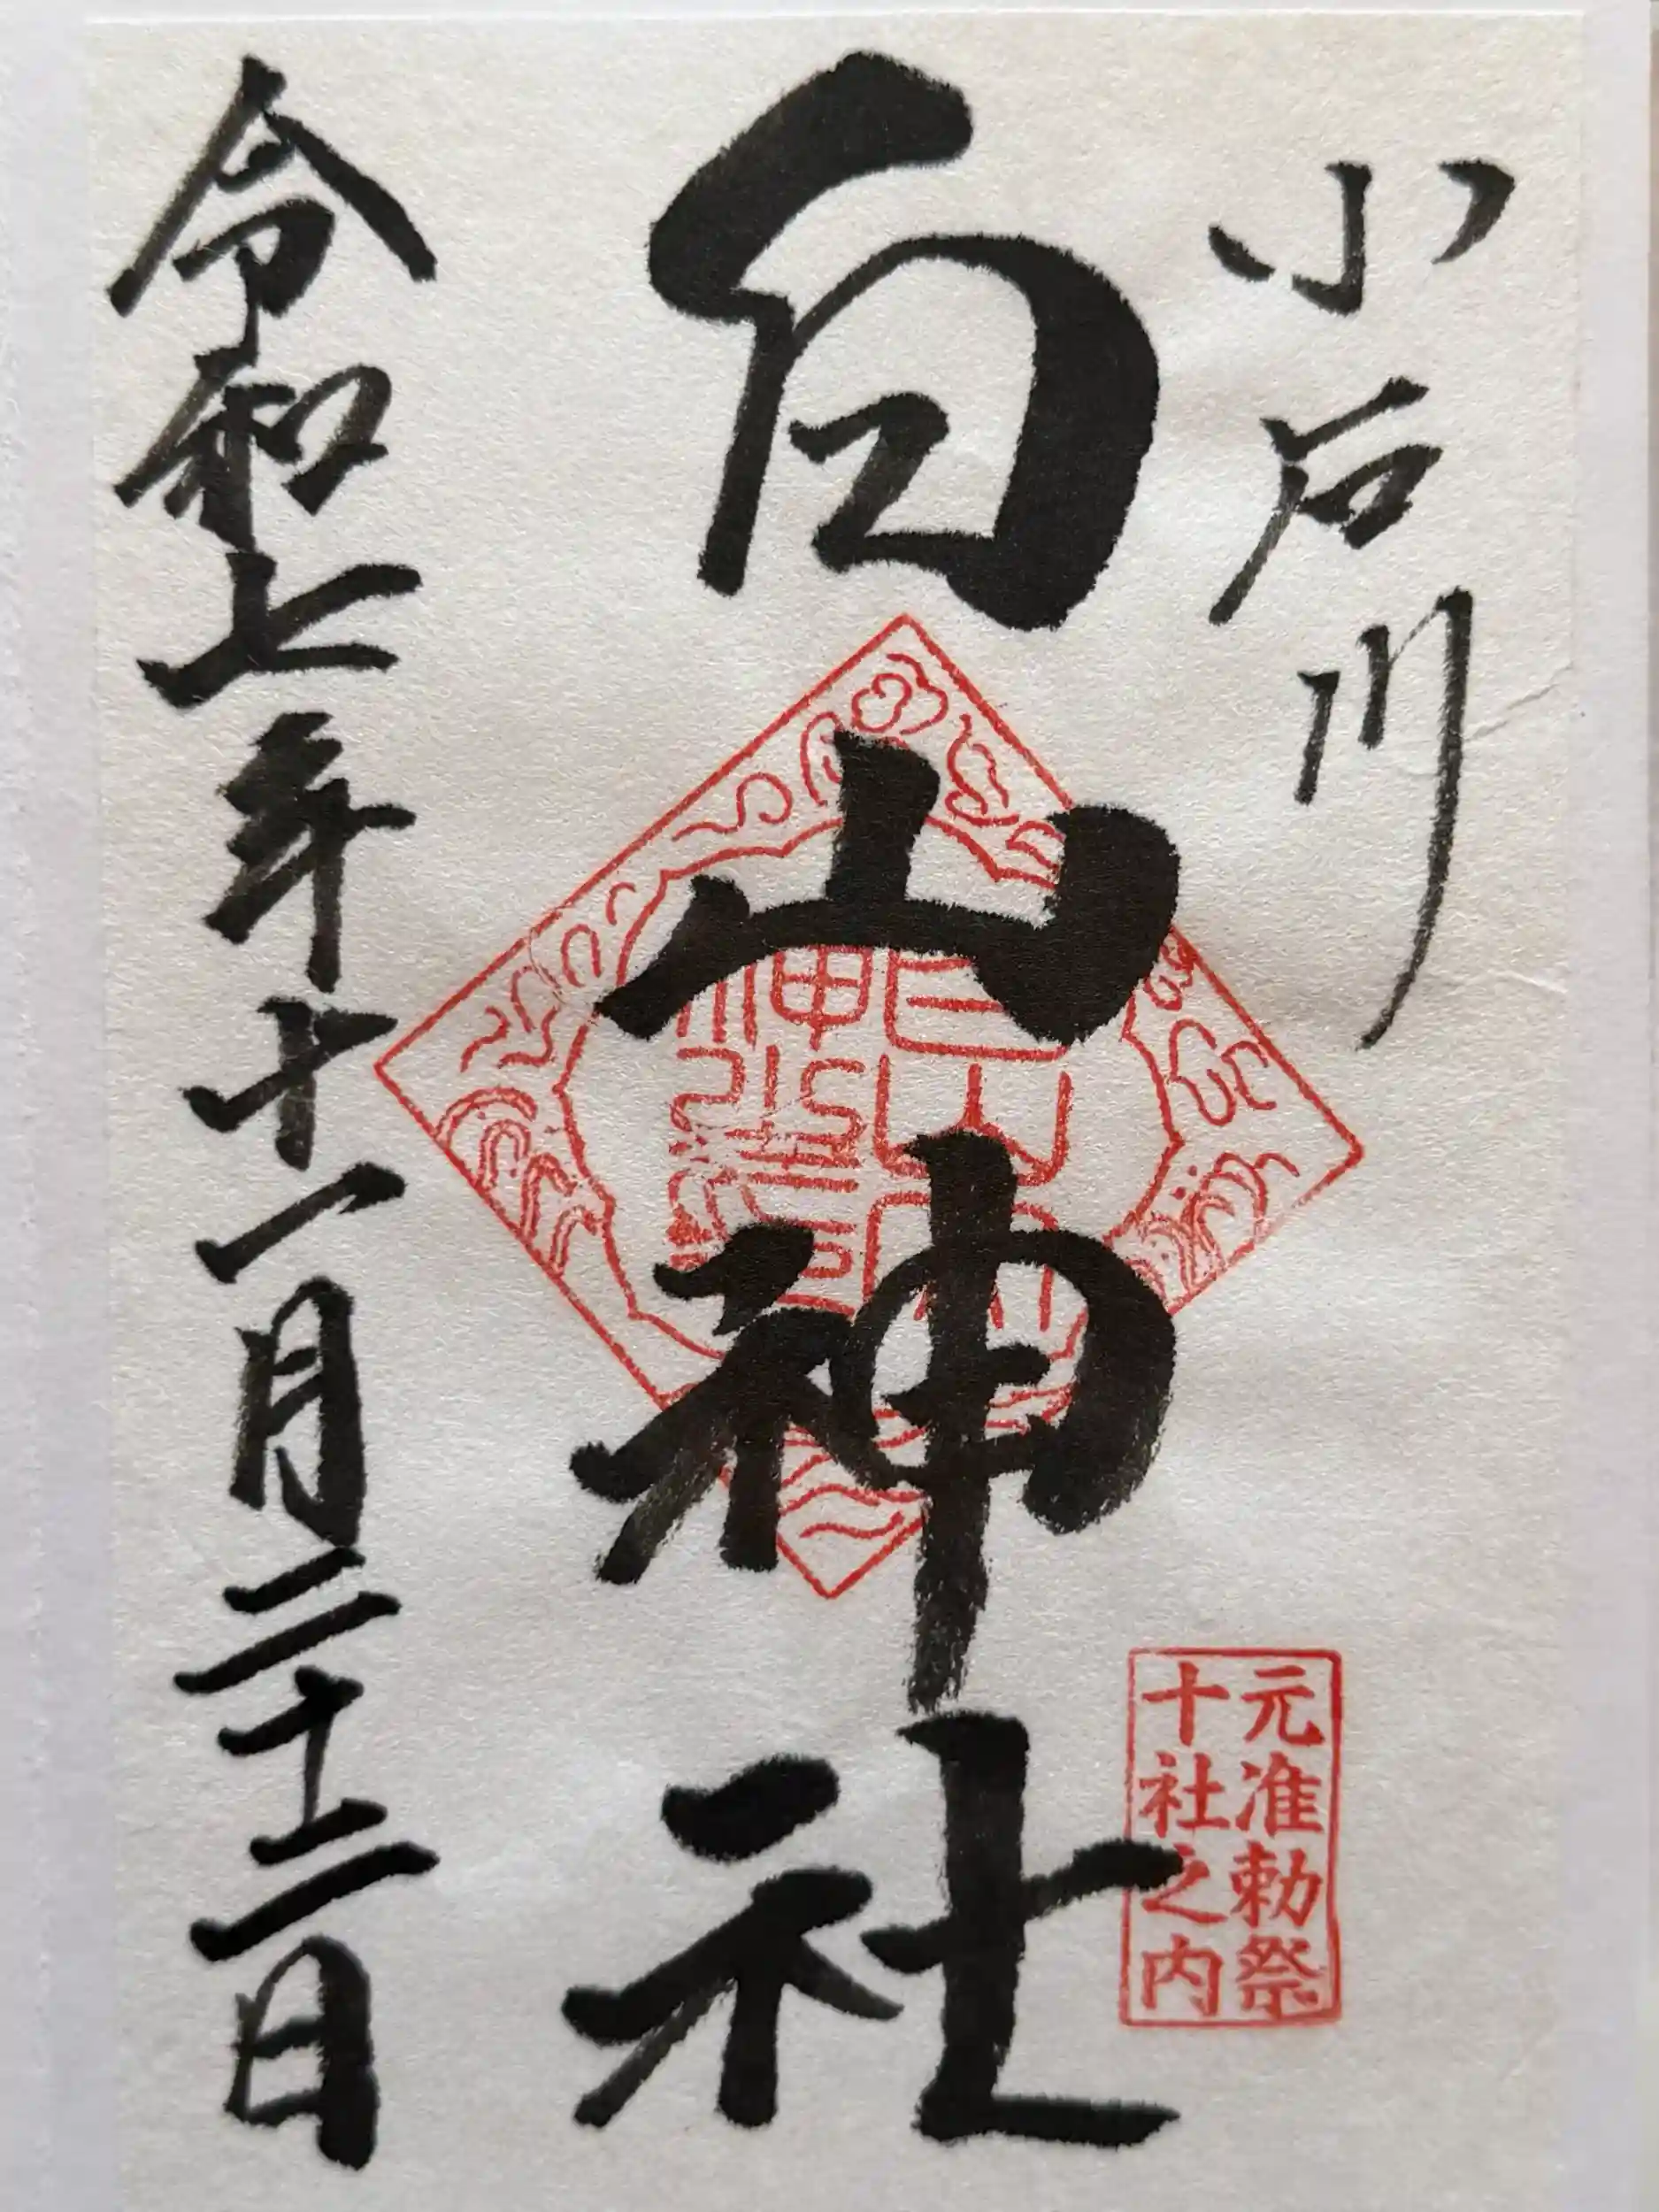 小石川
白山神社
令和七年十一月二十二日
元准勅祭
十社之内